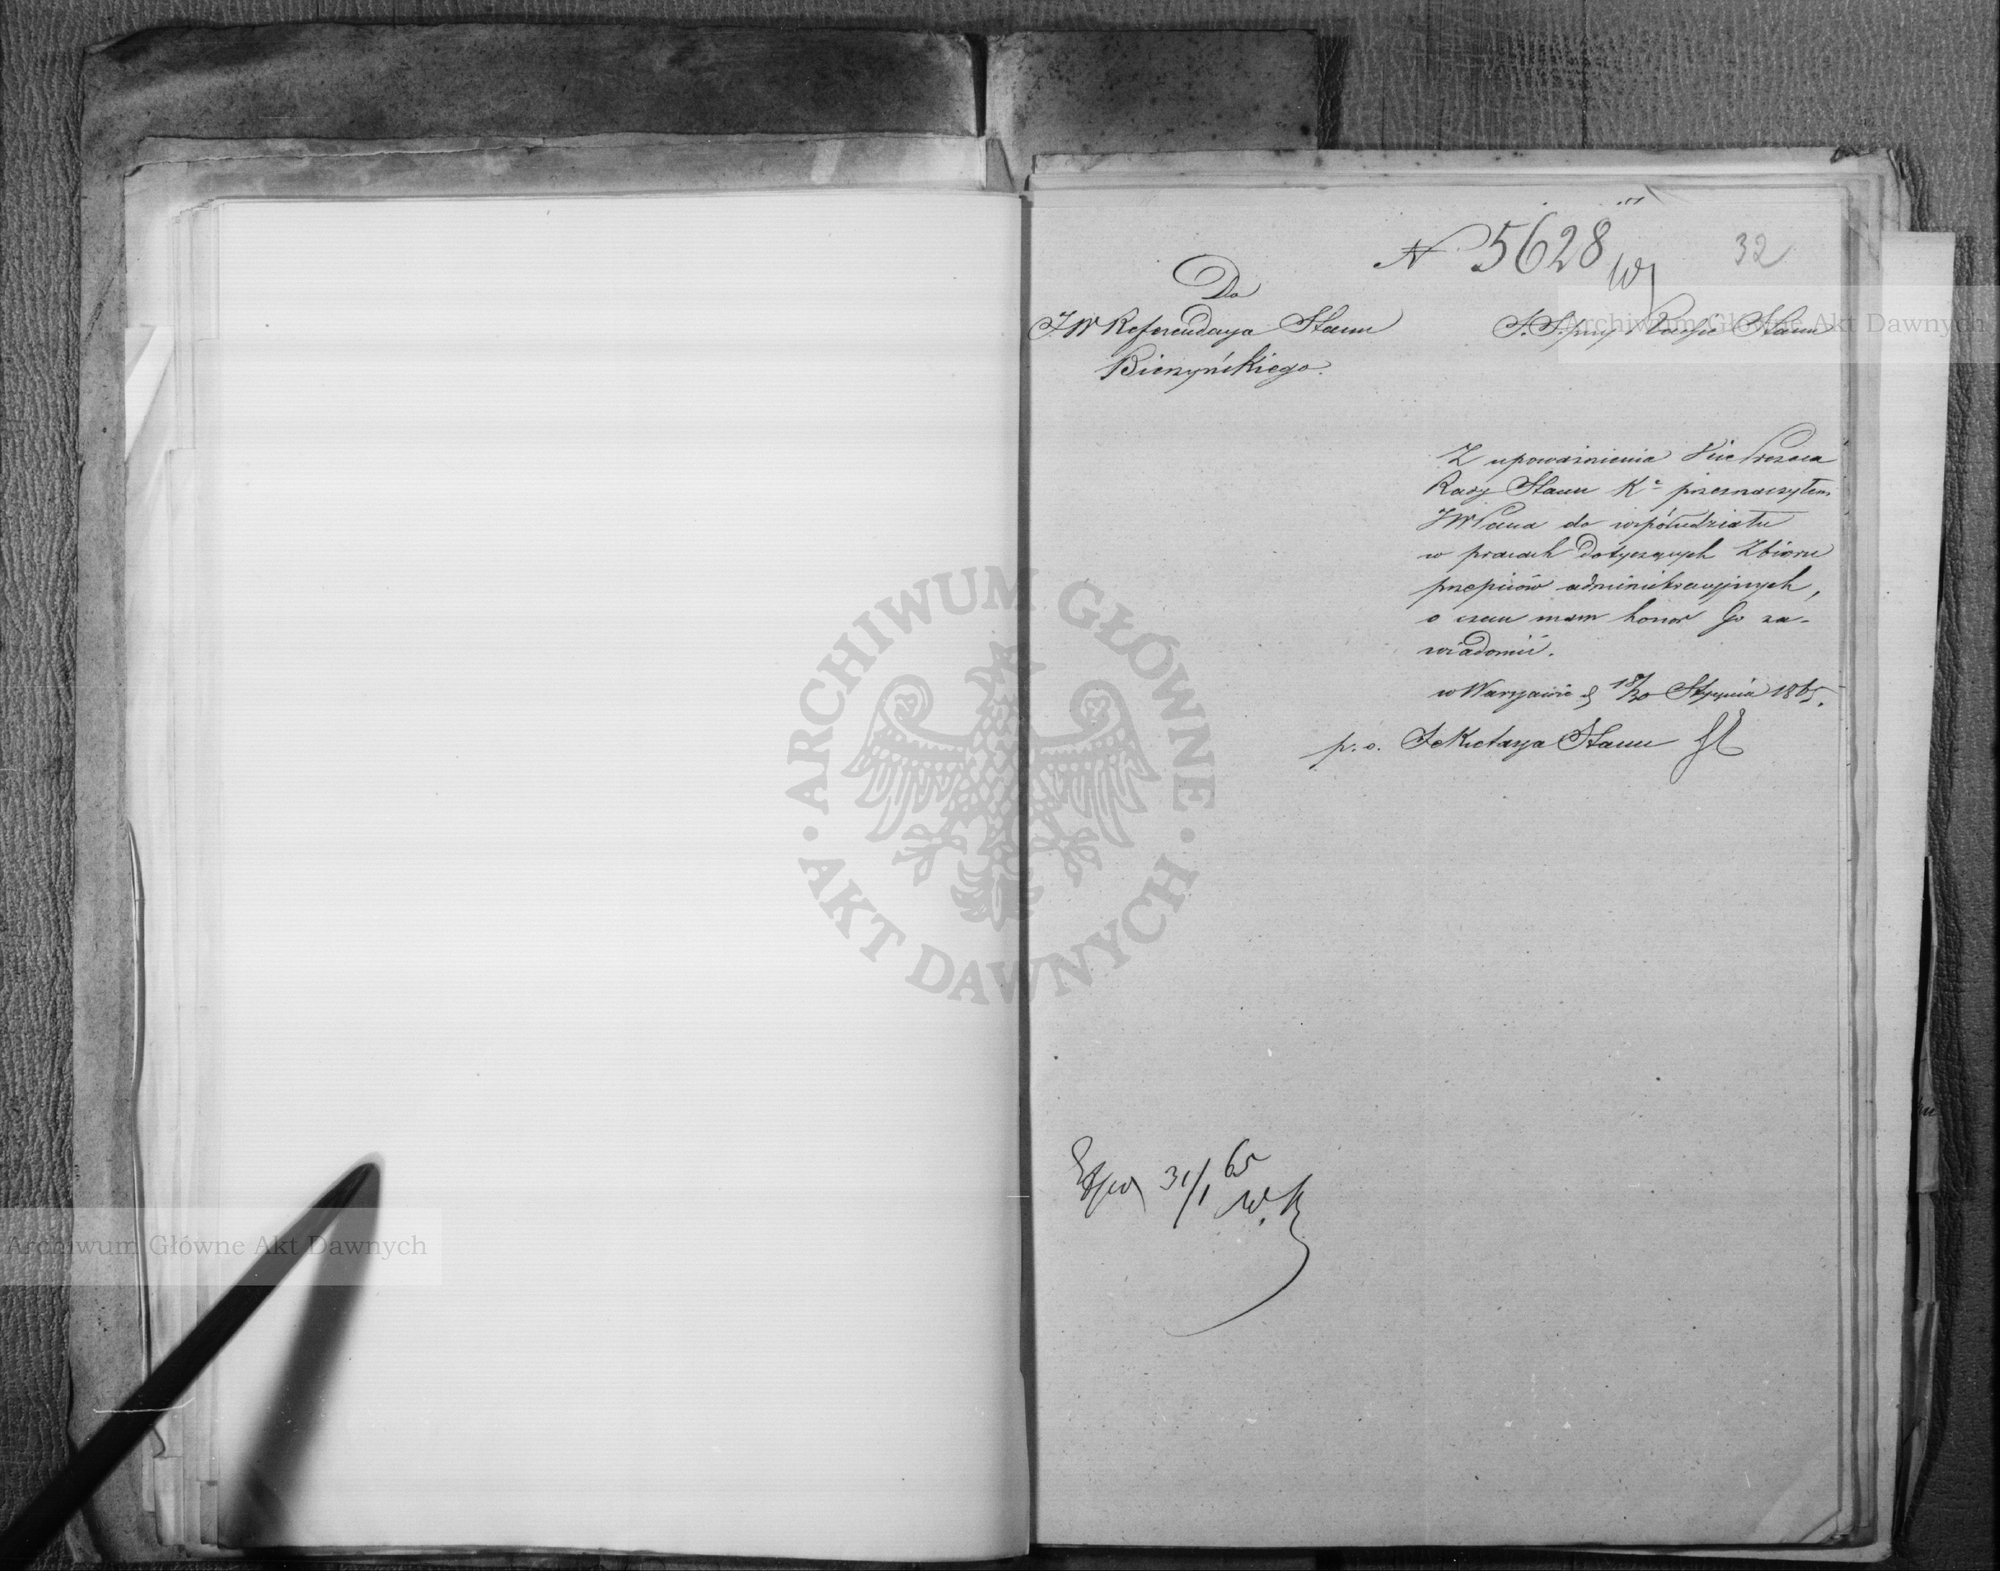 N 5628
32
Do
JW Referendarza Stanu
Bieczyńskiego.
S. S. przy Radzie Stanu
Z upoważnienia Vice Prezesa
Rady Stanu Kr. przeznaczyłem
JW Pana do współudziału
w pracach dotyczących Zbioru
przepisów administracyjnych,
o czem mam honor Go za-
wiadomić.
w Warszawie d 18/30 Stycznia 1865.
p. o. Sekretarza Stanu
31/1 65
W. K
ARCHIWUM GŁÓWNE
· AKT DAWNYCH ·
Archiwum Główne Akt Dawnych
Archiwum Główne Akt Dawnych